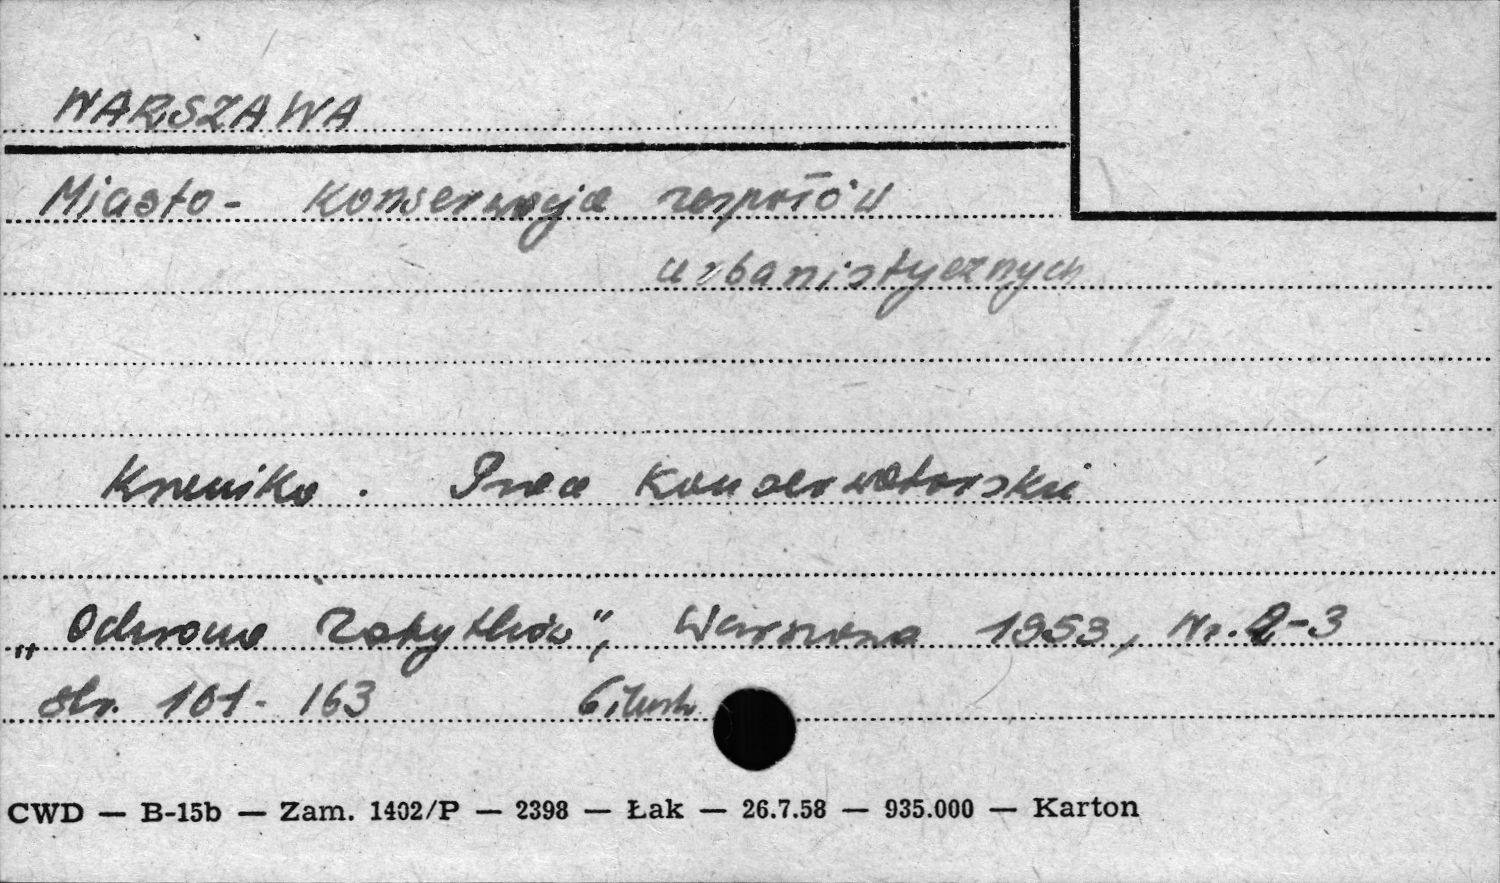 WARSZAWA
Miasto - Konserwacja zespołów
urbanistycznych
Kronika. Prace Konserwatorskie
„Ochrona Zabytków", Warszawa 1953, Nr. 2-3
str. 161 - 163 6 ilustr.
CWD — B-15b — Zam. 1402/P — 2398 — Łak — 26.7.58 — 935.000 — Karton